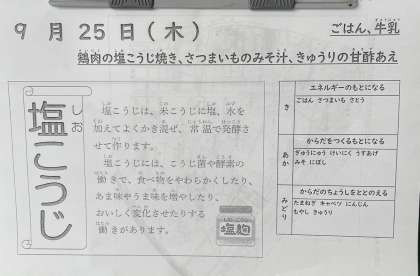 9月25日(木)
ごはん、牛乳
鶏肉の塩こうじ焼き、さつまいものみそ汁、きゅうりの甘酢あえ
塩こうじ
しお
塩こうじは、米こうじに塩、水を
加えてよくかき混ぜ、常温で発酵さ
せて作ります。
塩こうじには、こうじ菌や酵素の
働きで、食べ物をやわらかくしたり、
あま味やうま味を増やしたり、
おいしく変化させたりする
働きがあります。
塩麹
エネルギーのもとになる
き
ごはん さつまいも さとう
からだをつくるもとになる
あか
ぎゅうにゅう けいにく うすあげ
みそ にぼし
からだのちょうしをととのえる
みどり
たまねぎ キャベツ にんじん
もやし きゅうり